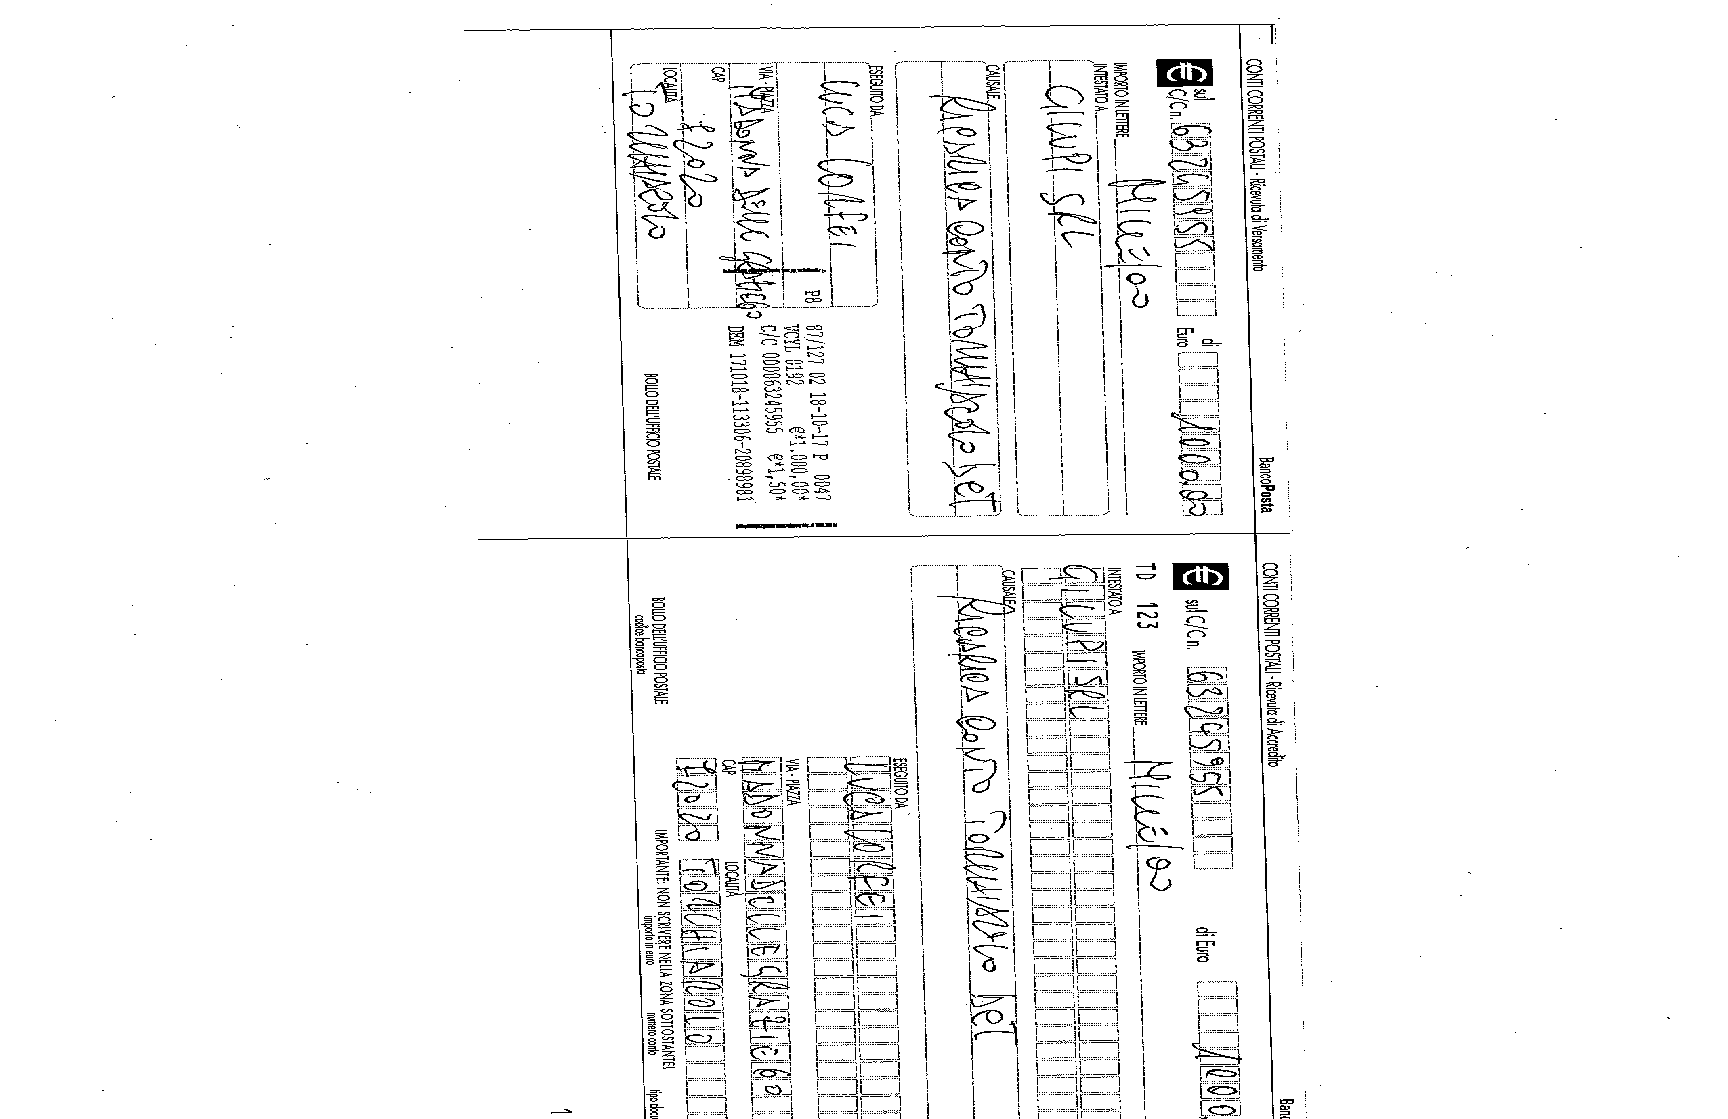 CONTI CORRENTI POSTALI - Ricevuta di Versamento
BancoPosta
€ sul C/C n. 63245955 di Euro 1000,00
IMPORTO IN LETTERE MILLE/00
INTESTATO A
GIUPI SRL
CAUSALE
RICARICA CONTO
ESEGUITO DA
VIA - PIAZZA
CAP
LOCALITÀ
PB
87/127 02 18-10-17 P 0047
VCYL 0192 €*1.000,00*
C/C 000063245955 €*1,50*
DEM 171018-113306-20898983
BOLLO DELL'UFFICIO POSTALE
CONTI CORRENTI POSTALI - Ricevuta di Accredito
€ sul C/C n. 63245955 di Euro 1000
TD 123 IMPORTO IN LETTERE MILLE/00
INTESTATO A
GIUPI SRL
CAUSALE
RICARICA CONTO
ESEGUITO DA
VIA - PIAZZA
MADONNA DELLE GRAZIE 60
CAP LOCALITÀ
72020
BOLLO DELL'UFFICIO POSTALE
codice bancoposta
IMPORTANTE: NON SCRIVERE NELLA ZONA SOTTOSTANTE!
importo in euro numero conto